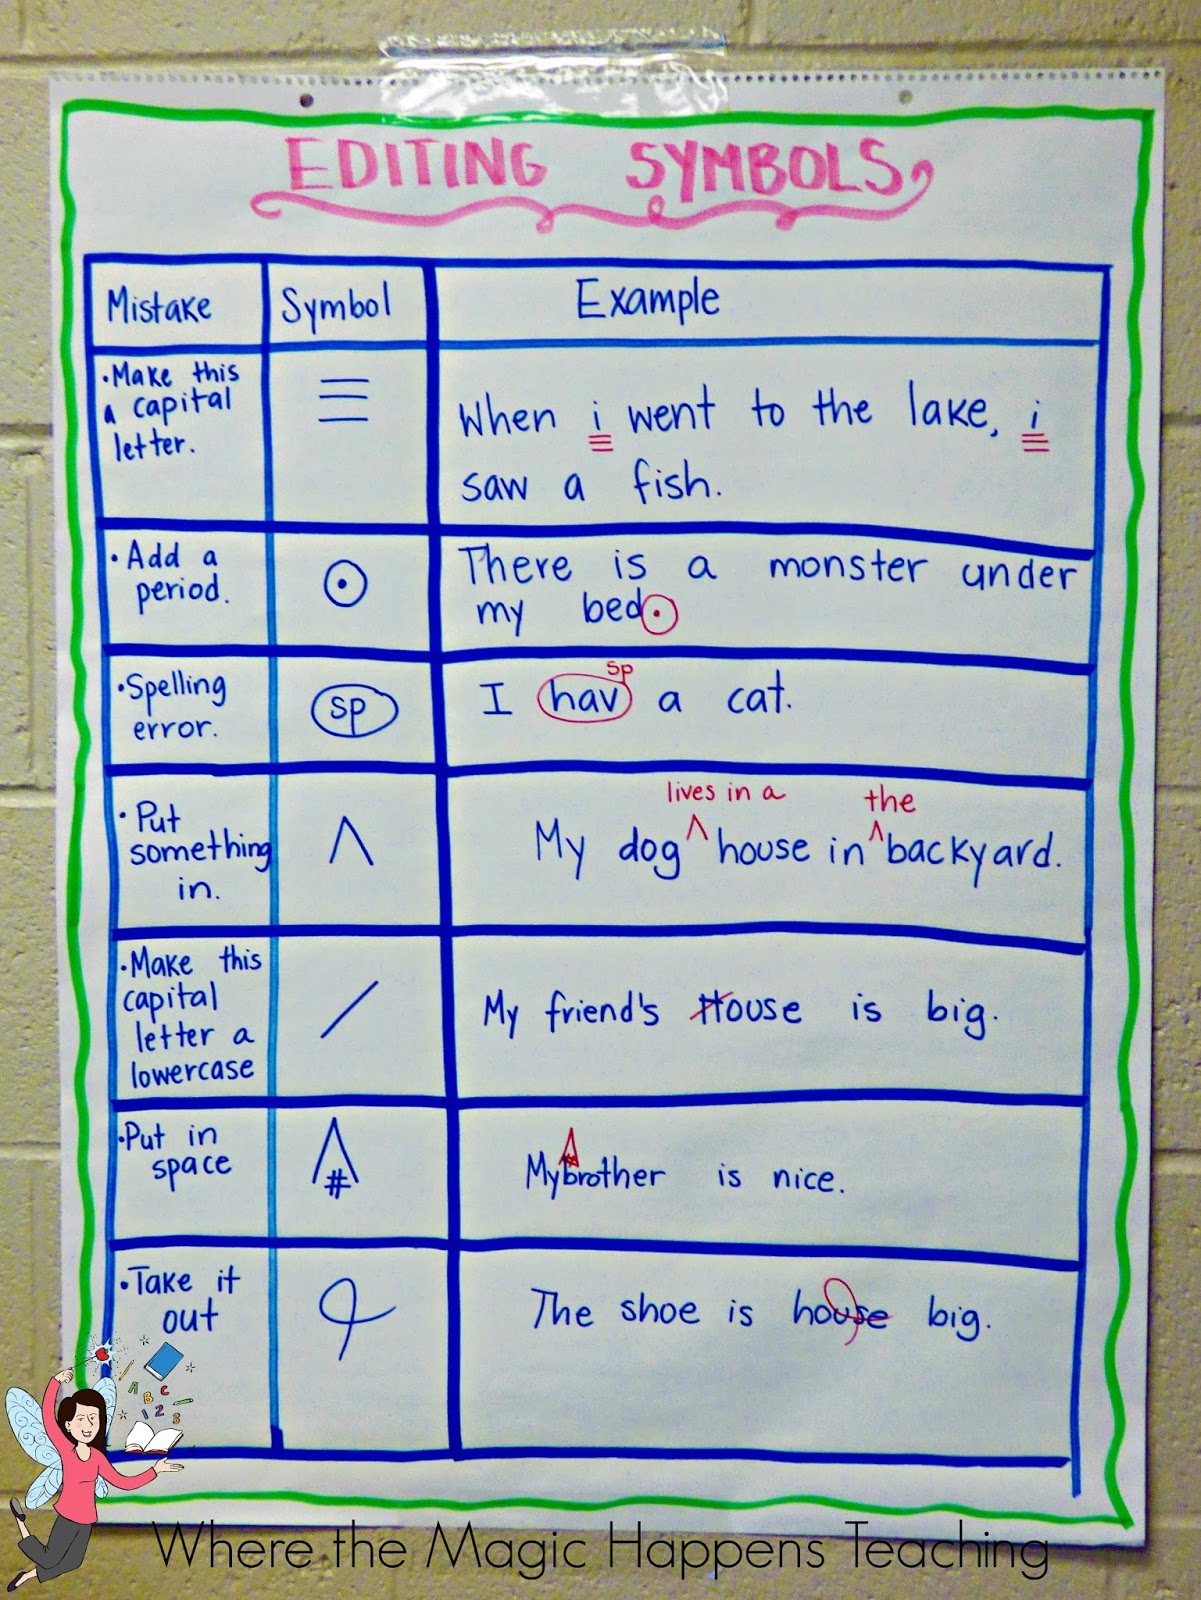 EDITING SYMBOLS
Mistake Symbol Example
• Make this
a capital
letter.
When i went to the lake, i
saw a fish.
• Add a
period.
There is a monster under
my bed
• Spelling
error.
sp
sp
I hav a cat.
• Put
something
in.
lives in a the
My dog ^ house in ^ backyard.
• Make this
capital
letter a
lowercase
/
My friend's House is big.
• Put in
space
#
#
Mybrother is nice.
• Take it
out
The shoe is house big.
A B C
1 2 3
Where the Magic Happens Teaching